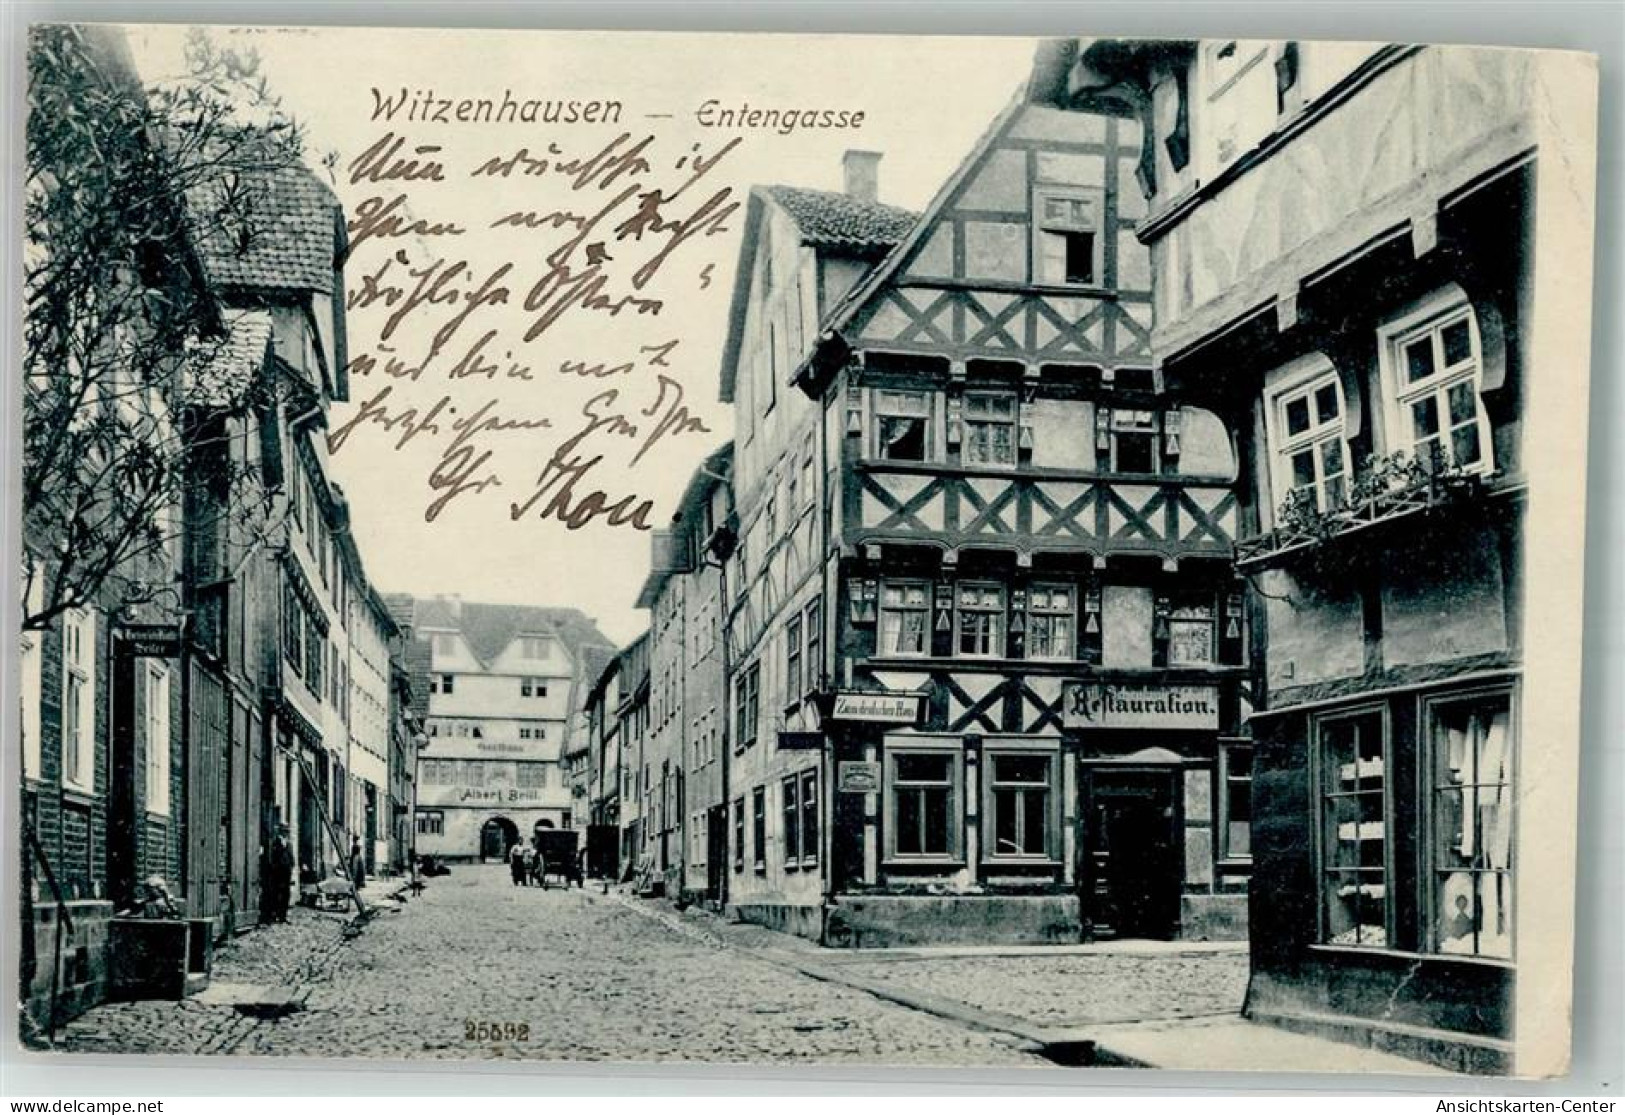 Witzenhausen — Entengasse
Nun wünsche ich
Ihnen noch Recht
Fröhliche Ostern"
und bin mit
herzlichem Gruße
Ihr Thon
Seiler
Gasthaus
Albert Brill.
Zum deutschen Haus
Restauration.
25592
delcampe.net
Ansichtskarten-Center